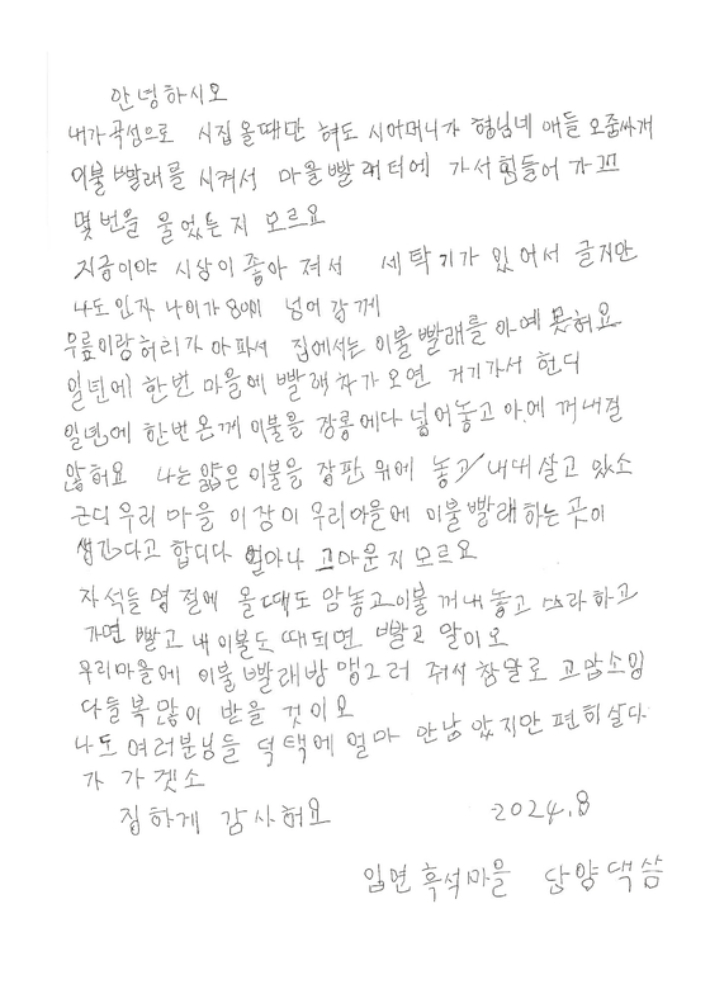 안녕하시오
내가 곡성으로 시집 올때만 혀도 시어머니가 형님네 애들 오줌싸개
이불 빨래를 시켜서 마을 빨래터에 가서 힘들어 가꼬
몇번을 울었는지 모르요
지금이야 시상이 좋아 져서 세탁기가 있어서 글지만
나도 인자 나이가 80이 넘어 감께
무릎이랑 허리가 아파서 집에서는 이불빨래를 아예 못허요
일년에 한번 마을에 빨래차가 오면 거기가서 헌디
일년에 한번 온께 이불을 장롱에다 넣어놓고 아에 꺼내질
않허요 나는 얇은 이불을 장판 위에 놓고 내내 살고 있소
근디 우리 마을 이장이 우리마을에 이불빨래 하는 곳이
생긴다고 합디다 얼마나 고마운지 모르요
자석들 명절에 올때도 암놓고 이불 꺼내 놓고 쓰라하고
가면 빨고 내 이불도 때되면 빨고 말이오
우리마을에 이불빨래방 맹그러 줘서 참말로 고맙소잉
다들 복 많이 받을 것이오
나도 여러분님들 덕택에 얼마 안남았지만 편히 살다
가 가겟소
집하게 감사허요 2024.8
입면 흑석마을 담양댁 씀